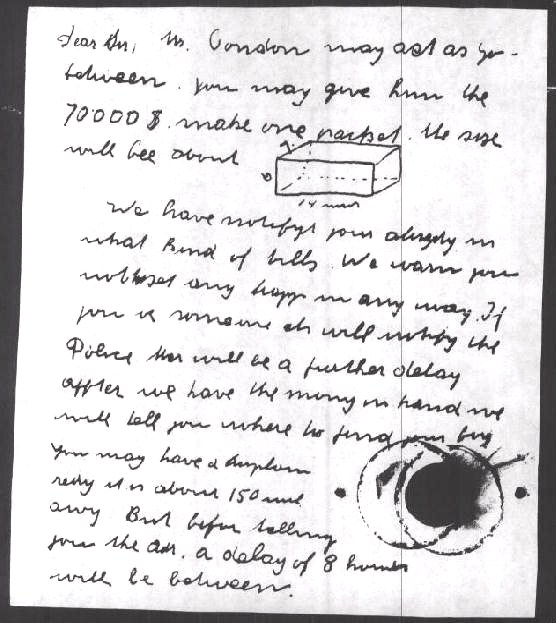 Dear Sir, Mr. Condon may act as go-
between. you may give him the
70000 $. make one packet. the size
will bee about
7
6
14 inch
We have notifyt you allredy in
what kind of bills. We warn you
not to set any trapp in any way. If
you or someone els will notify the
Police ther will be a further delay
affter we have the mony in hand we
will tell you where to find your boy
You may have a airplain
redy it is about 150 mil
awy. But befor telling
you the adr. a delay of 8 houers
will be between.